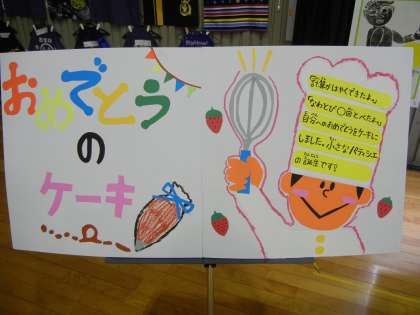 おめでとう
の
ケーキ
「計算がはやくできたよ。」
「なわとび〇回とべたよ。」
自分へのおめでとうをケーキに
しました。小さなパティシエ
の誕生です!